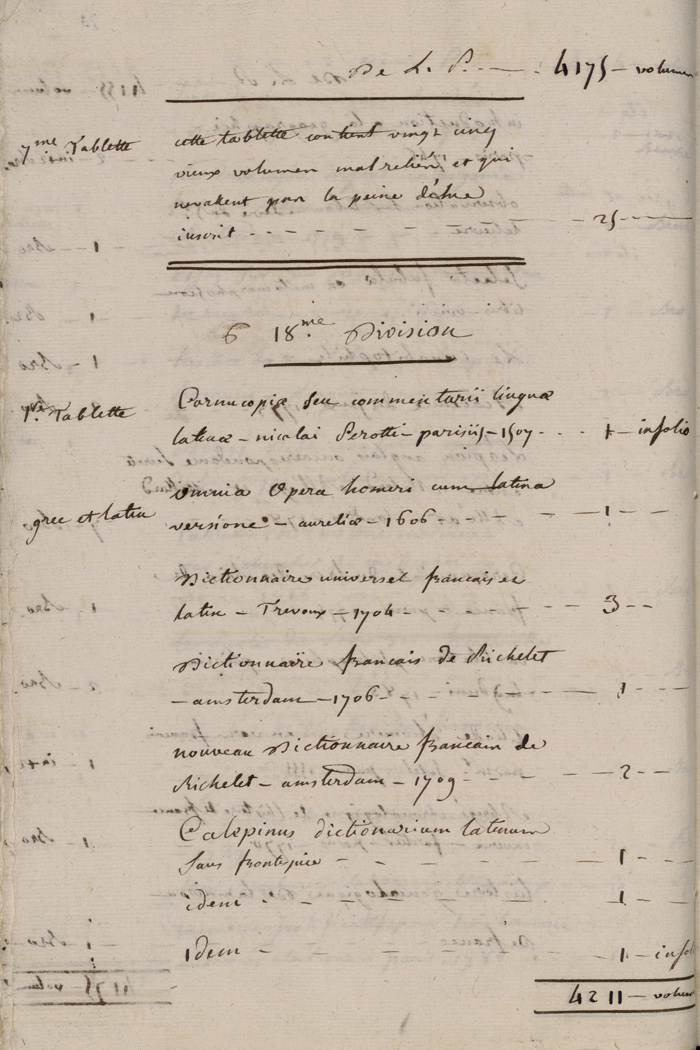 De L. P. — . 4175 — volumes
7me Tablette
cette tablette contient vingt cinq
vieux volumes mal reliés et qui
nevalent pas la peine d'être
inscrit - - - - - - 25 —
6 18me Division
1re Tablette
Cornucopiæ seu commentarii linguæ
latinæ - nicolai Perotti - parisiis - 1507 - . . 1 - infolio
omnia opera homeri cum latina
grec et latin
versione - aureliæ - 1606 - - - - 1 - -
Dictionnaire universel français et
latin - Trevoux - 1704 - - - - 3 - -
Dictionnaire français de Richelet
- amsterdam - 1706 - - - - - 1 - -
nouveau Dictionnaire français de
Richelet - amsterdam - 1709 - - - 2 - -
Calepinus dictionarium latinum
sans frontispice - - - - - 1 - -
idem - - - - - - 1 - -
Idem - - - - - - 1 - infol
4211 - volum